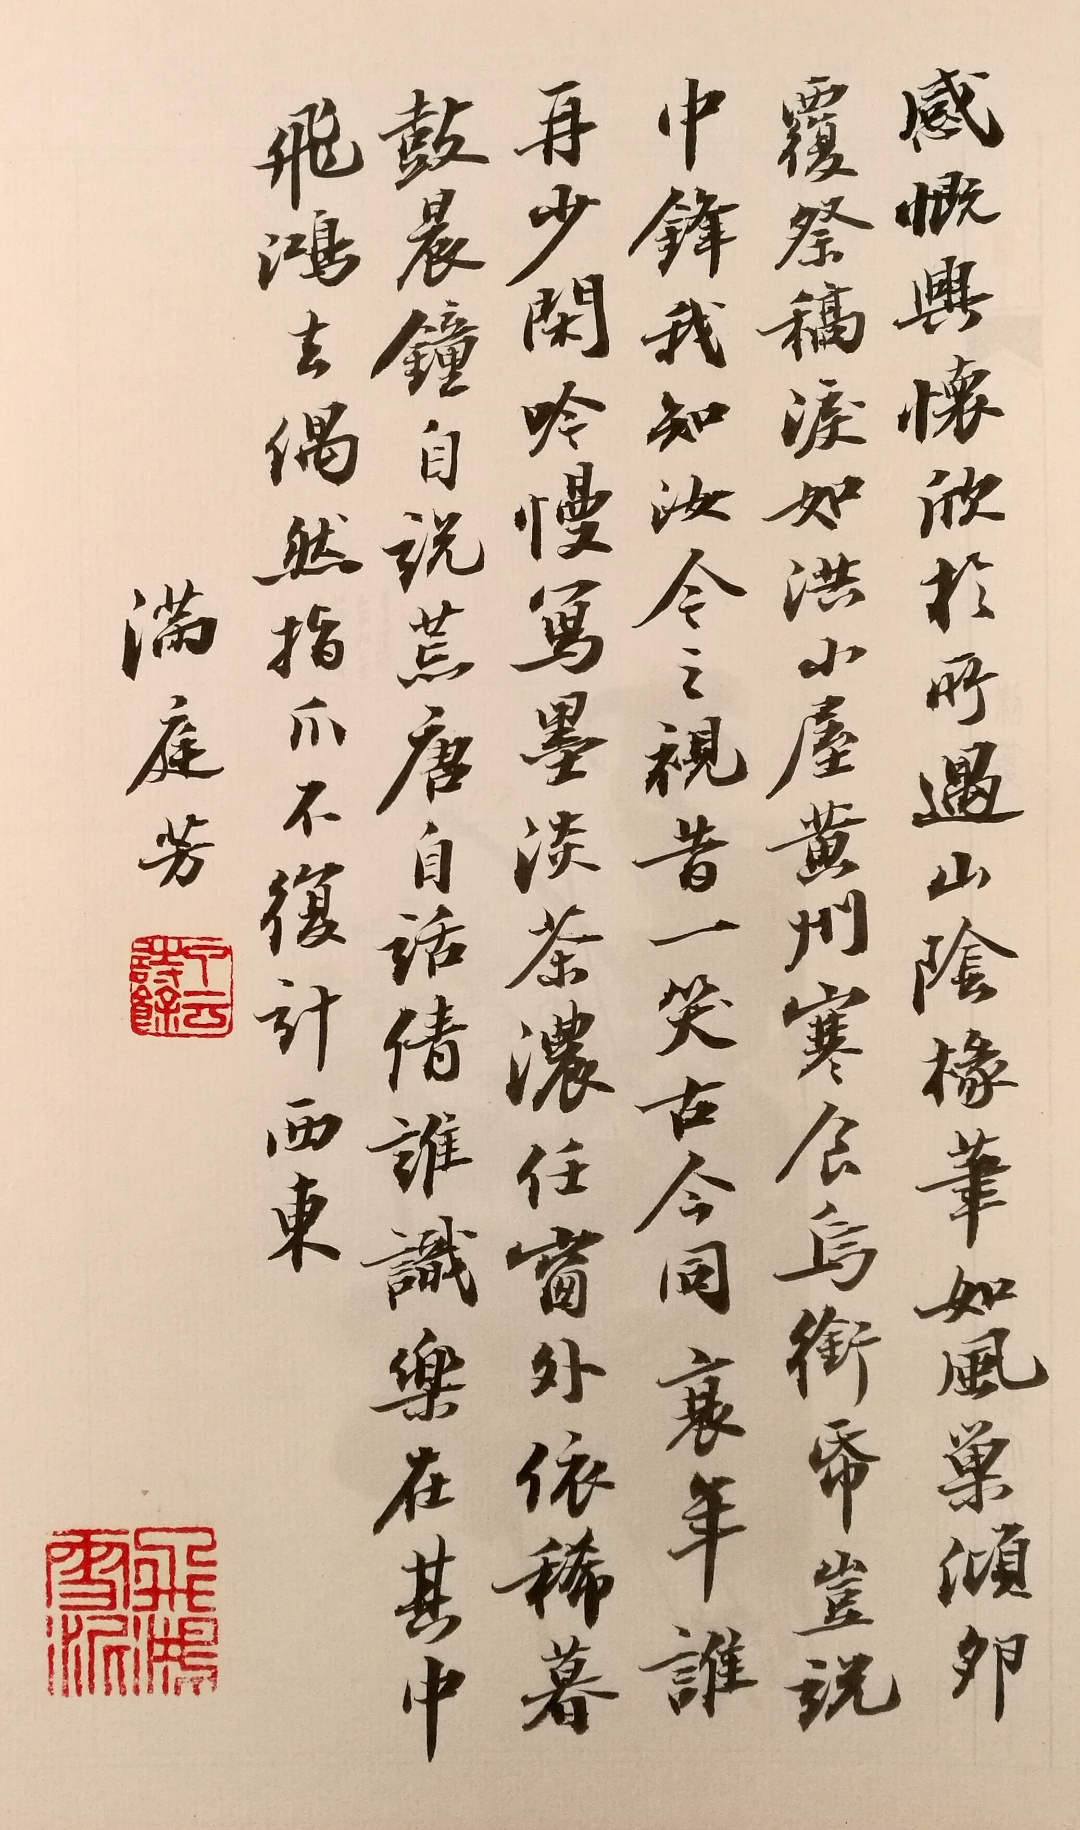 感慨興懷欣於所遇山陰椽筆如風巢傾卵
覆祭稿淚如洪小屋黄州寒食烏銜帋豈説
中鋒我知汝今之視昔一笑古今同衰年誰
再少閑吟慢寫墨淡茶濃任窗外依稀暮
鼓晨鐘自説荒唐自話倩誰識樂在其中
飛鴻去偶然指爪不復計西東
滿庭芳
飛鴻雪泥